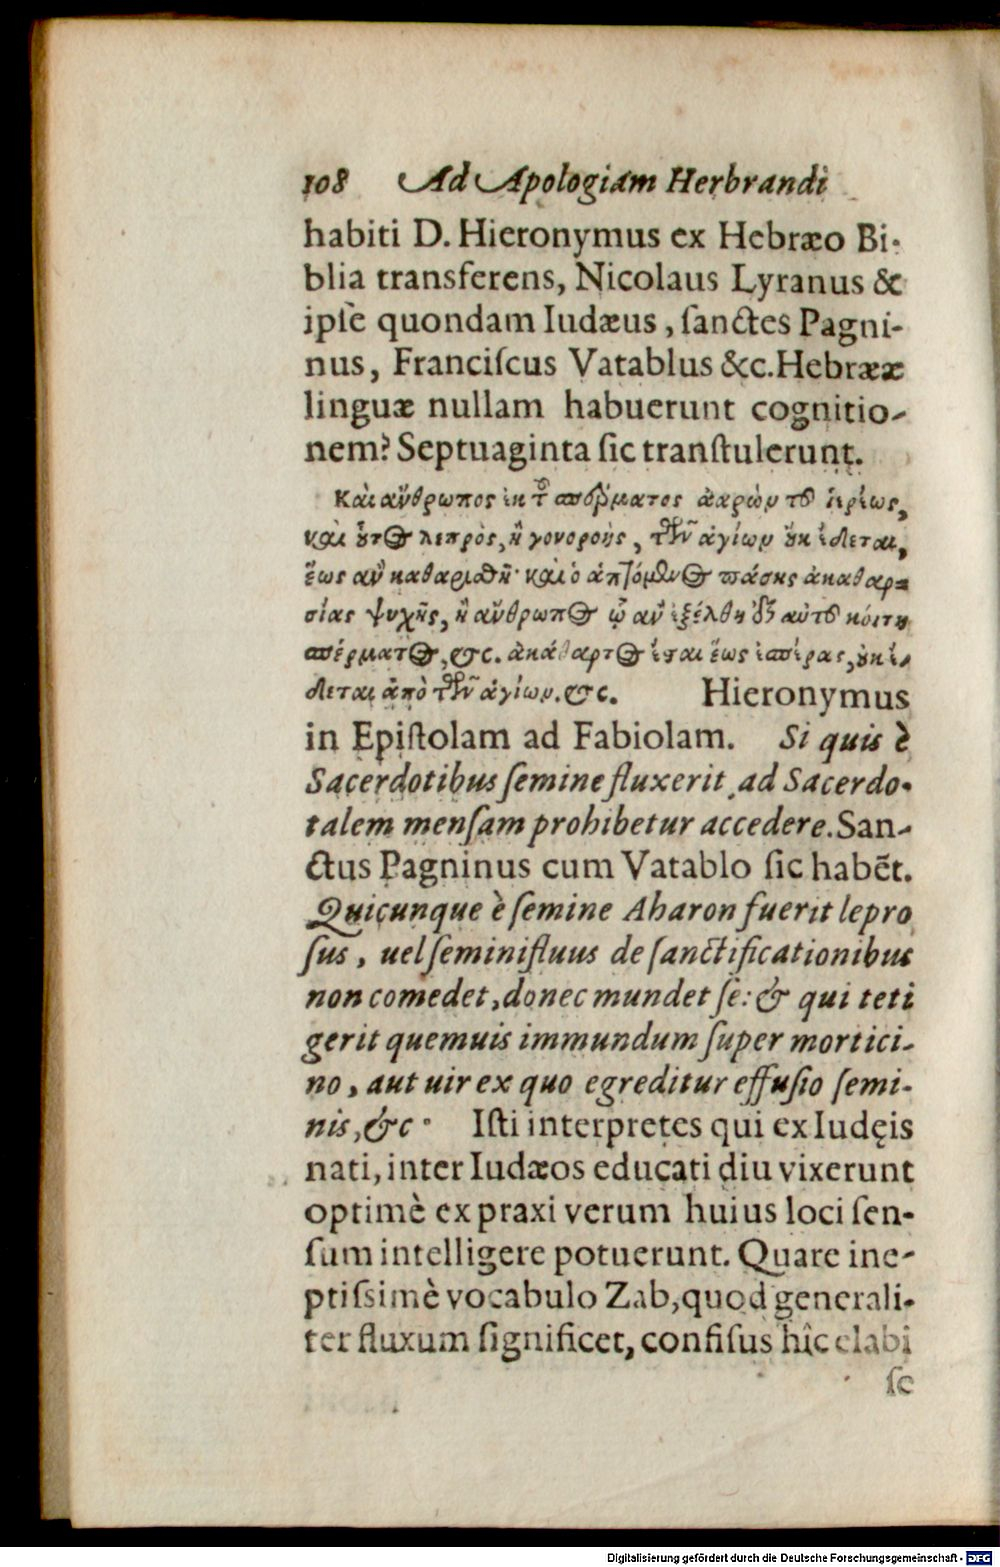 108 Ad Apologiam Herbrandi
habiti D. Hieronymus ex Hebræo Bi-
blia transferens, Nicolaus Lyranus &
ipſe quondam Iudæus, ſanctes Pagni-
nus, Franciſcus Vatablus &c. Hebrææ
linguæ nullam habuerunt cognitio-
nem? Septuaginta ſic tranſtulerunt.
Καὶ ἄνθρωπος ἐκ τοῦ σπέρματος ἀαρὼν τοῦ ἱερέως,
καὶ οὗτος λεπρὸς, ἢ γονορυὴς, τῶν ἁγίων οὐκ ἔδεται,
ἕως ἂν καθαρισθῇ· καὶ ὁ ἁπτόμενος πάσης ἀκαθαρ-
σίας ψυχῆς, ἢ ἄνθρωπος ᾧ ἂν ἐξέλθῃ ἐξ αὐτοῦ κοίτη
σπέρματος, &c. ἀκάθαρτος ἔσται ἕως ἑσπέρας, οὐκ ἔ-
δεται ἀπὸ τῶν ἁγίων. &c. Hieronymus
in Epiſtolam ad Fabiolam. Si quis è
Sacerdotibus ſemine fluxerit, ad Sacerdo-
talem menſam prohibetur accedere. San-
ctus Pagninus cum Vatablo ſic habẽt.
Quicunque è ſemine Aharon fuerit lepro
ſus, uel ſeminifluus de ſanctificationibus
non comedet, donec mundet ſe: & qui teti
gerit quemuis immundum ſuper mortici-
no, aut uir ex quo egreditur effuſio ſemi-
nis, &c. Iſti interpretes qui ex Iudęis
nati, inter Iudæos educati diu vixerunt
optimè ex praxi verum huius loci ſen-
ſum intelligere potuerunt. Quare ine-
ptiſsimè vocabulo Zab, quod generali-
ter fluxum ſignificet, confiſus hîc elabi
ſe
Digitalisierung gefördert durch die Deutsche Forschungsgemeinschaft - DFG